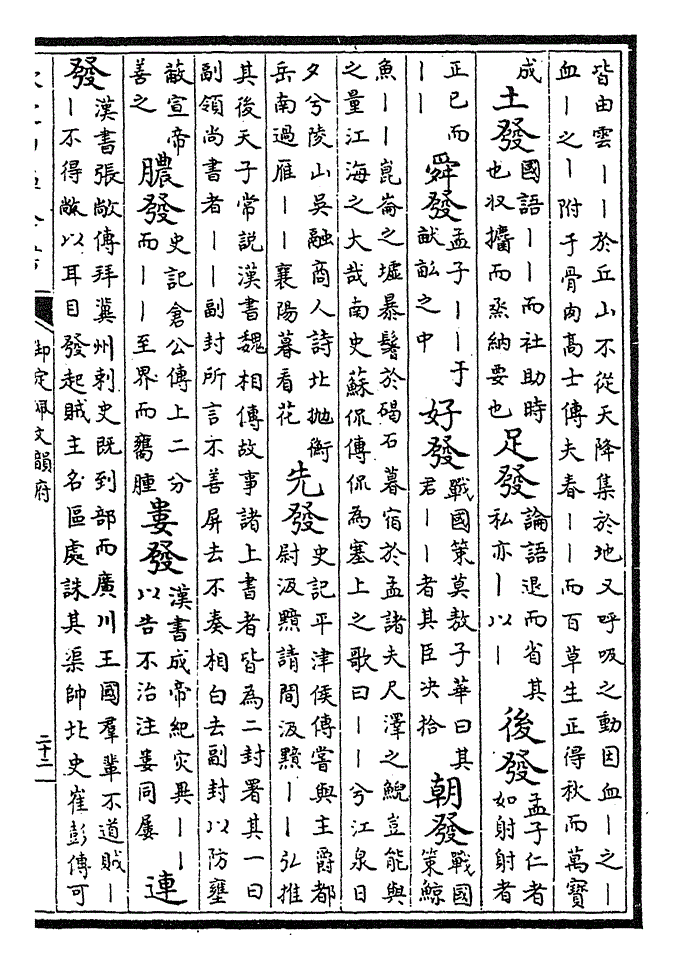 皆由雲丨丨於丘山不從天降集於地又呼吸之動因血丨之丨
血丨之丨附于骨肉髙士傳夫春丨丨而百草生正得秋而萬寶
成
土發
國語丨丨而社助時
也収攟而烝納要也
足發
論語退而省其
私亦丨以丨
後發
孟子仁者
如射射者
正已而
丨丨
舜發
孟子丨丨于
畎畝之中
好發
戰國策莫敖子華曰其
君丨丨者其臣決拾
朝發
戰國
策鯨
魚丨丨崑崙之墟暴鬐於碣石暮宿於孟諸夫尺澤之鯢豈能與
之量江海之大哉南史蘇侃傳侃為塞上之歌曰丨丨兮江泉日
夕兮陵山吳融商人詩北抛衡
岳南過雁丨丨襄陽暮看花
先發
史記平津侯傳嘗與主爵都
尉汲黯請間汲黯丨丨弘推
其後天子常説漢書魏相傳故事諸上書者皆為二封署其一曰
副領尚書者丨丨副封所言不善屏去不奏相白去副封以防壅
蔽宣帝
善之
膿發
史記倉公傳上二分
而丨丨至界而癰腫
婁發
漢書成帝紀灾異丨丨
以告不治注婁同屢
連
發
漢書張敞傳拜冀州刺史既到部而廣川王國羣輩不道賊丨
丨不得敞以耳目發起賊主名區處誅其渠帥北史崔彭傳可
御定佩文韻府
二十二